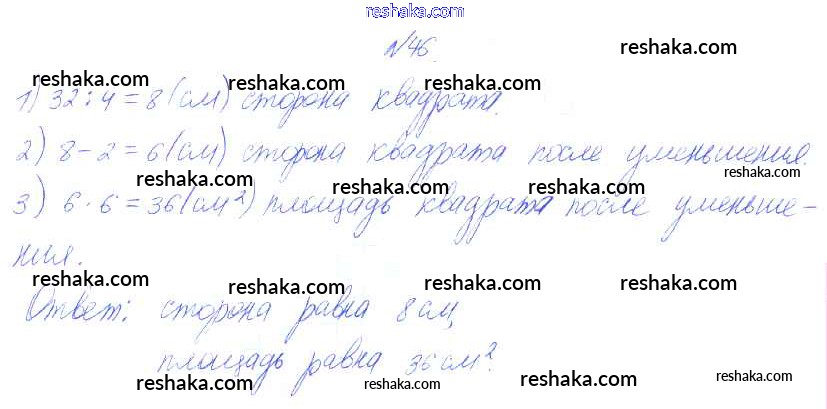 reshaka.com
№46. reshaka.com
reshaka.com reshaka.com reshaka.com
1) 32:4=8(см) сторона квадрата.
2) 8-2=6(см) сторона квадрата после уменьшения.
reshaka.com reshaka.com reshaka.com
3) 6·6=36(см²) площадь квадрата после уменьше-
ния.
reshaka.com reshaka.com reshaka.com
Ответ: сторона равна 8см,
reshaka.com reshaka.com reshaka.com
площадь равна 36см².
reshaka.com reshaka.com reshaka.com reshaka.com